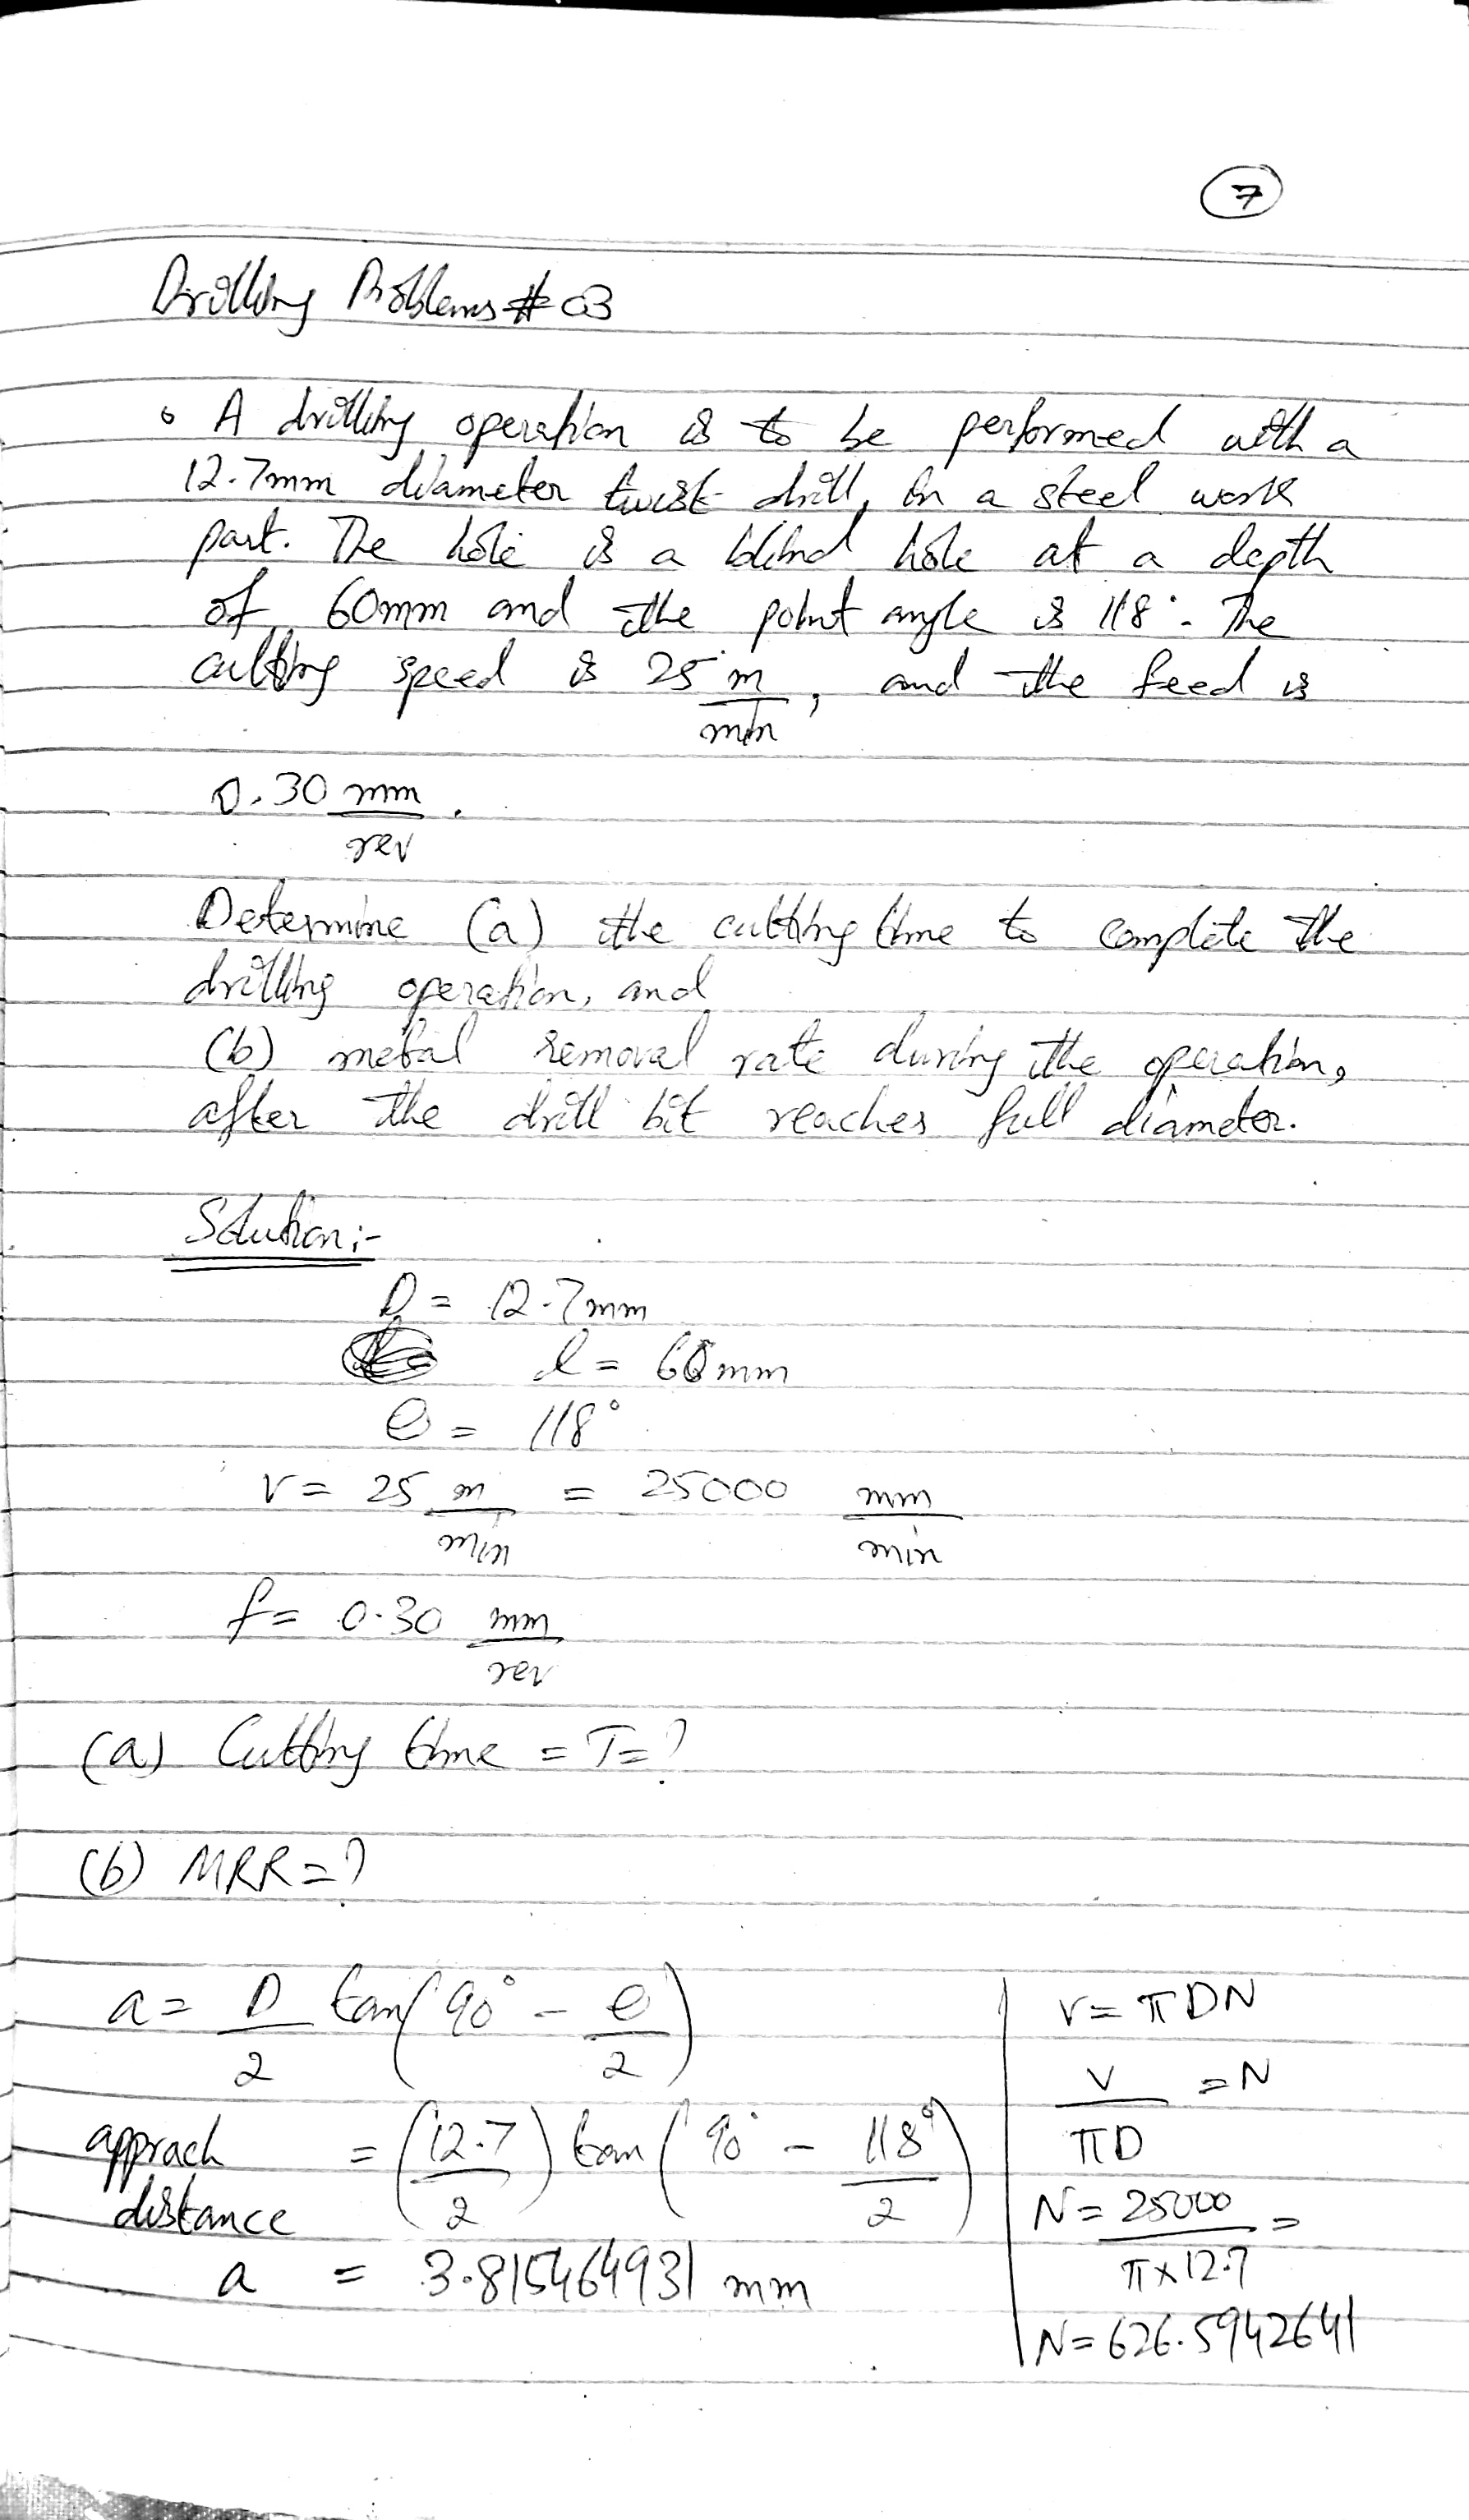 7
Drilling Problems # 03
• A drilling operation is to be performed with a
12.7mm diameter twist drill, in a steel work
part. The hole is a blind hole at a depth
of 60mm and the point angle is 118°. The
cutting speed is 25 m/min, and the feed is
0.30 mm/rev.
Determine (a) the cutting time to complete the
drilling operation, and
(b) metal removal rate during the operation,
after the drill bit reaches full diameter.
Solution:-
D = 12.7mm
l = 60mm
θ = 118°
v = 25 m/min = 25000 mm/min
f = 0.30 mm/rev
(a) Cutting time = T = ?
(b) MRR = ?
a = D/2 tan(90° - θ/2)
apprach = (12.7/2) tan(90° - 118°/2)
distance
a = 3.815464931 mm
v = πDN
v/πD = N
N = 25000/π×12.7 =
N = 626.5942641